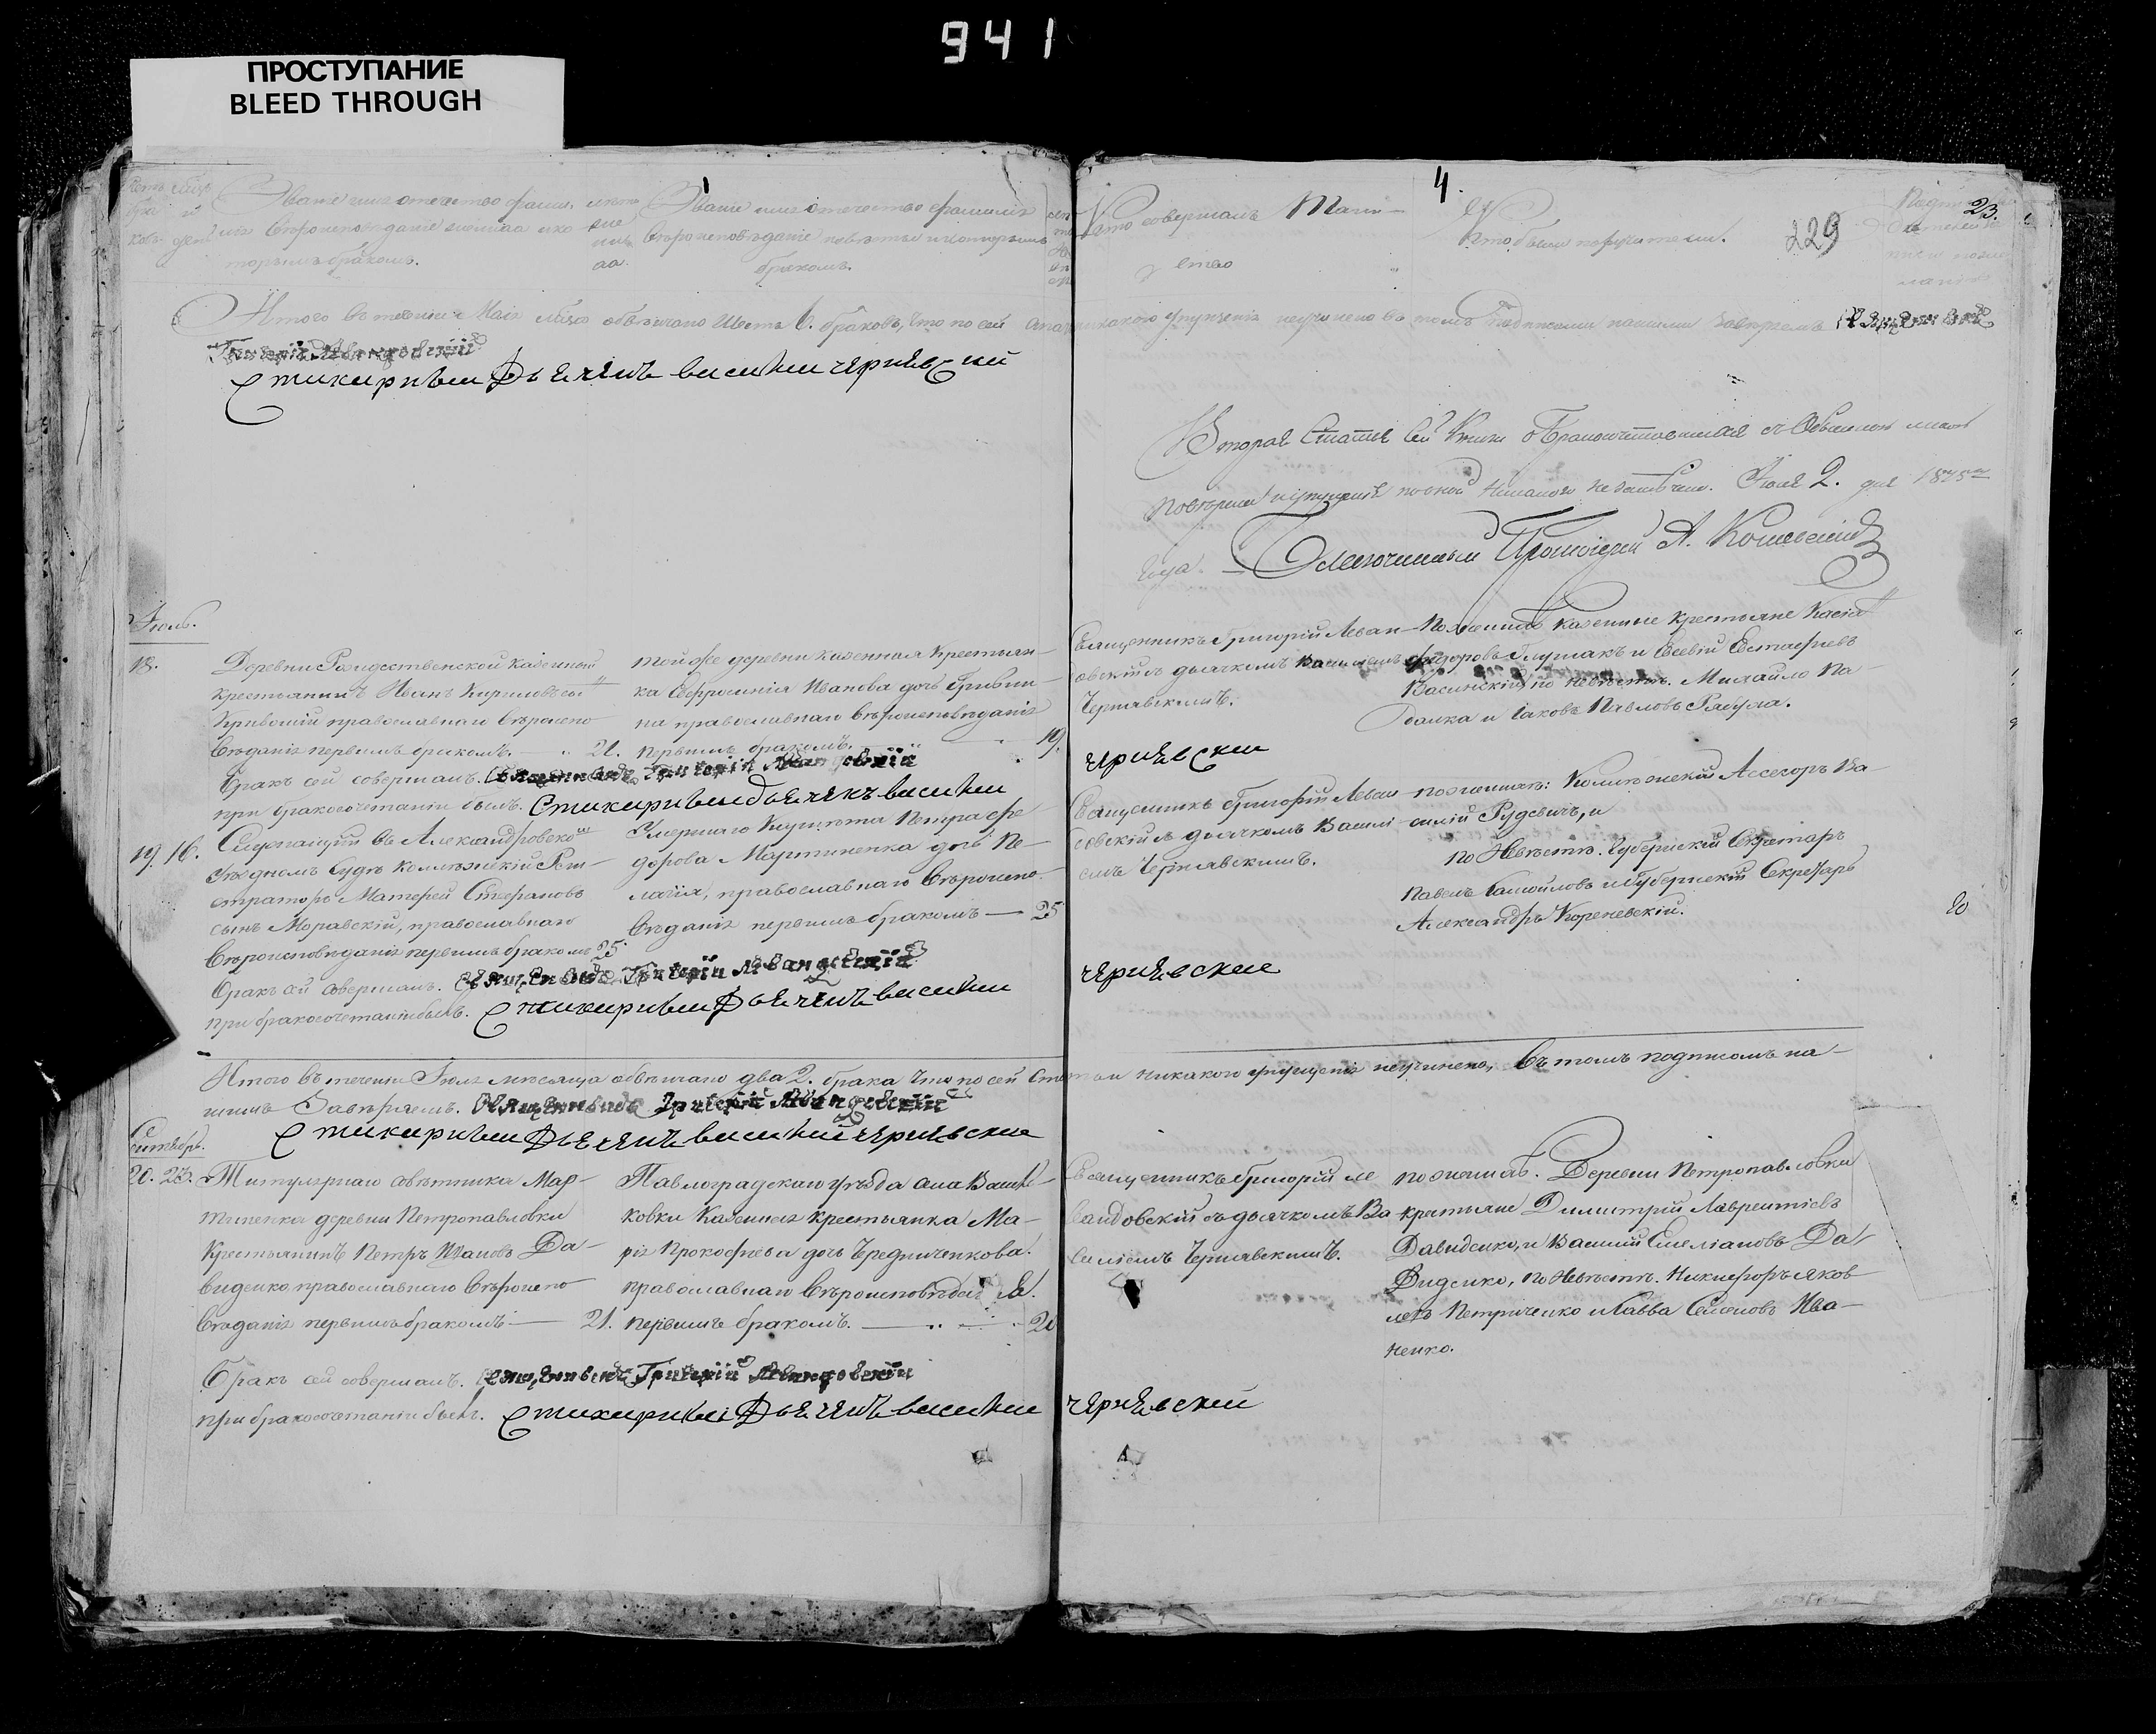 941
ПРОСТУПАНИЕ
BLEED THROUGH
4.
23.
229
Званіе имя отечество фами-
лія вѣроисповѣданіе жениха и ко-
торымъ бракомъ.
Званіе имя отечество фамилія
вѣроисповѣданіе невѣсты и которымъ
бракомъ.
Кто совершалъ Таин-
ство
Кто были поручители.
Итого въ теченіи Маія обвѣнчано шесть 6. браковъ, что по сей
никакого упущенія неучинено въ томъ подписами нашими завѣряемъ Священникъ
Григорій Левандовскій
Стихирный Дьячекъ Василій Чернявскій
Вторая Статья сей Книги о бракосочетавшихся
повѣрена и упущенія по оной никакого не замѣчено. Іюля 2. дня
года.
Благочинный Протоіерей А.
Іюль.
18.
Деревни Рождественской казенный
крестьянинъ Иванъ Кириловъ сынъ
православнаго вѣроиспо-
вѣданія первымъ бракомъ. 21.
той же деревни казенная крестьян-
ка Евфросинія Иванова дочь
на православнаго вѣроисповѣданія
первымъ бракомъ. 19.
Священникъ Григорій Леван-
довскій съ дьячкомъ Василіемъ
Чернявскимъ.
По женихѣ казенные крестьяне
Федоровъ и Евсевій Евстафіевъ
по невѣстѣ. Михайло Па
далка и Іаковъ Павловъ Рябуха.
Бракъ сей совершалъ. Священникъ Григорій Левандовскій
при бракосочетаніи былъ. Стихирный дьячекъ Василій Чернявскій
19. 16.
Служащій въ Александровскомъ
Уѣздномъ Судѣ Коллежскій Реги-
страторъ Матфей Стефановъ
сынъ Моравскій, православнаго
вѣроисповѣданія первымъ бракомъ 25.
Умершаго Петра Фе
дорова Мартиненка дочь Пе-
лагія, православнаго вѣроиспо-
вѣданія первымъ бракомъ — 25
Священникъ Григорій Леван
довскій съ дьячкомъ Василі-
емъ Чернявскимъ.
по женихѣ: Коллежскій Асесоръ Ва-
силій Рудевичъ, и
по Невѣстѣ. Губернскій Секретарь
Павелъ Самойловъ и Губернскій Секретарь
Александръ Кореневскій.
Бракъ сей совершалъ. Священникъ Григорій Левандовскій
при бракосочетаніи былъ. Стихирный Дьячекъ Василій Чернявскій
Итого въ теченіи Іюля мѣсяца обвѣнчано два 2. брака что по сей Статьи никакого упущенія неучинено, въ томъ подписомъ на-
шимъ Завѣряемъ. Священникъ Григорій Левандовскій
Стихирный Дьячекъ Василій Чернявскій
Сентябрь.
20. 23.
Титулярнаго совѣтника Мар-
тиненка деревни Петропавловки
Крестьянинъ Петръ Ивановъ Да-
виденко, православнаго вѣроиспо
вѣданія первымъ бракомъ — 21.
Павлоградскаго уѣзда села
ковки Казенная крестьянка Ма-
рія Прокофіева дочь Чередниченкова.
православнаго вѣроисповѣданія
первымъ бракомъ. — 20
Священникъ Григорій Ле
вандовскій съ дьячкомъ Ва
силіемъ Чернявскимъ.
по женихѣ. Деревни Петропавловки
крестьяне Димитрій Лаврентіевъ
Давиденко, и Василій Емеліановъ Да
виденко, по Невѣстѣ. Никифоръ Яков
левъ Петриченко и Савва Семеновъ Ива-
ненко.
Бракъ сей совершалъ. Священникъ Григорій Левандовскій
при бракосочетаніи былъ. Стихирный Дьячекъ Василій Чернявскій